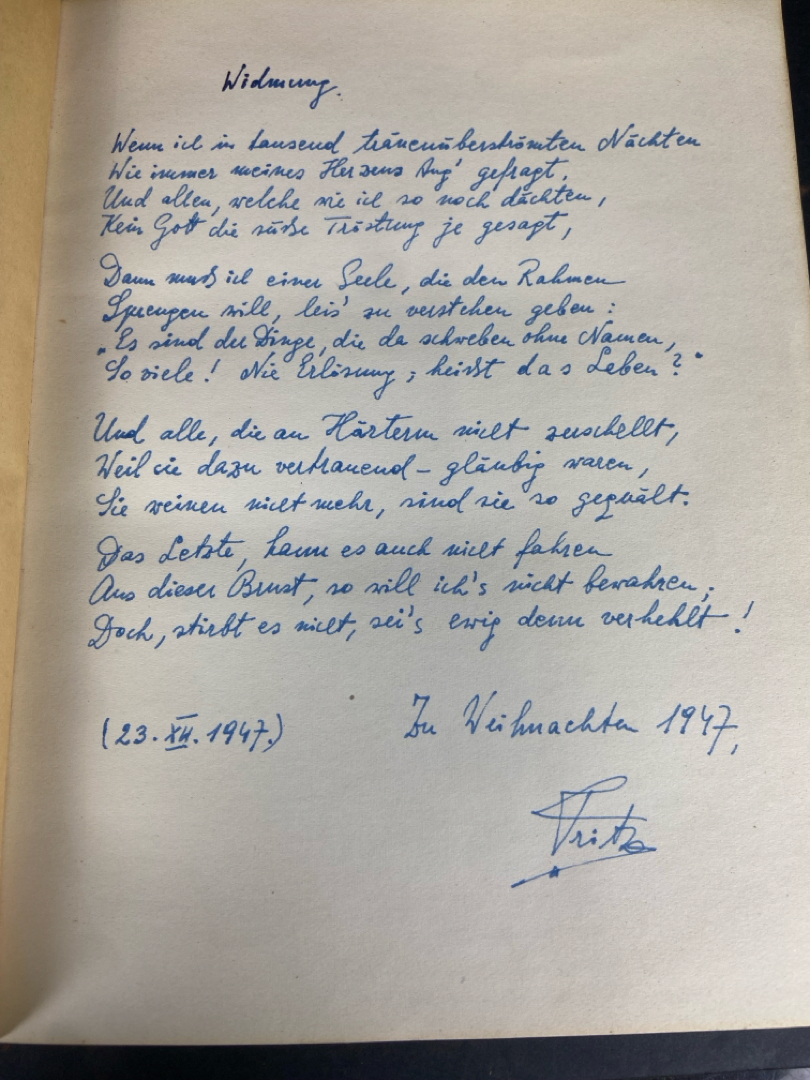 Widmung.
Wenn ich in tausend tränenüberströmten Nächten
Wie immer meines Herzens Aug' gefragt,
Und allen, welche wie ich so noch dächten,
Kein Gott die süße Tröstung je gesagt,
Dann muß ich einer Seele, die den Rahmen
Sprengen will, leis' zu verstehen geben:
„Es sind der Dinge, die da schweben ohne Namen,
So viele! Nie Erlösung; heißt das Leben?"
Und alle, die an Härtern nicht zerschellt,
Weil sie dazu vertrauend-gläubig waren,
Sie weinen nicht mehr, sind sie so gequält.
Das Letzte, kann es auch nicht fahren
Aus dieser Brust, so will ich's nicht bewahren;
Doch, stirbt es nicht, sei's ewig denn verhehlt!
(23. XII. 1947.)
Zu Weihnachten 1947,
Fritz